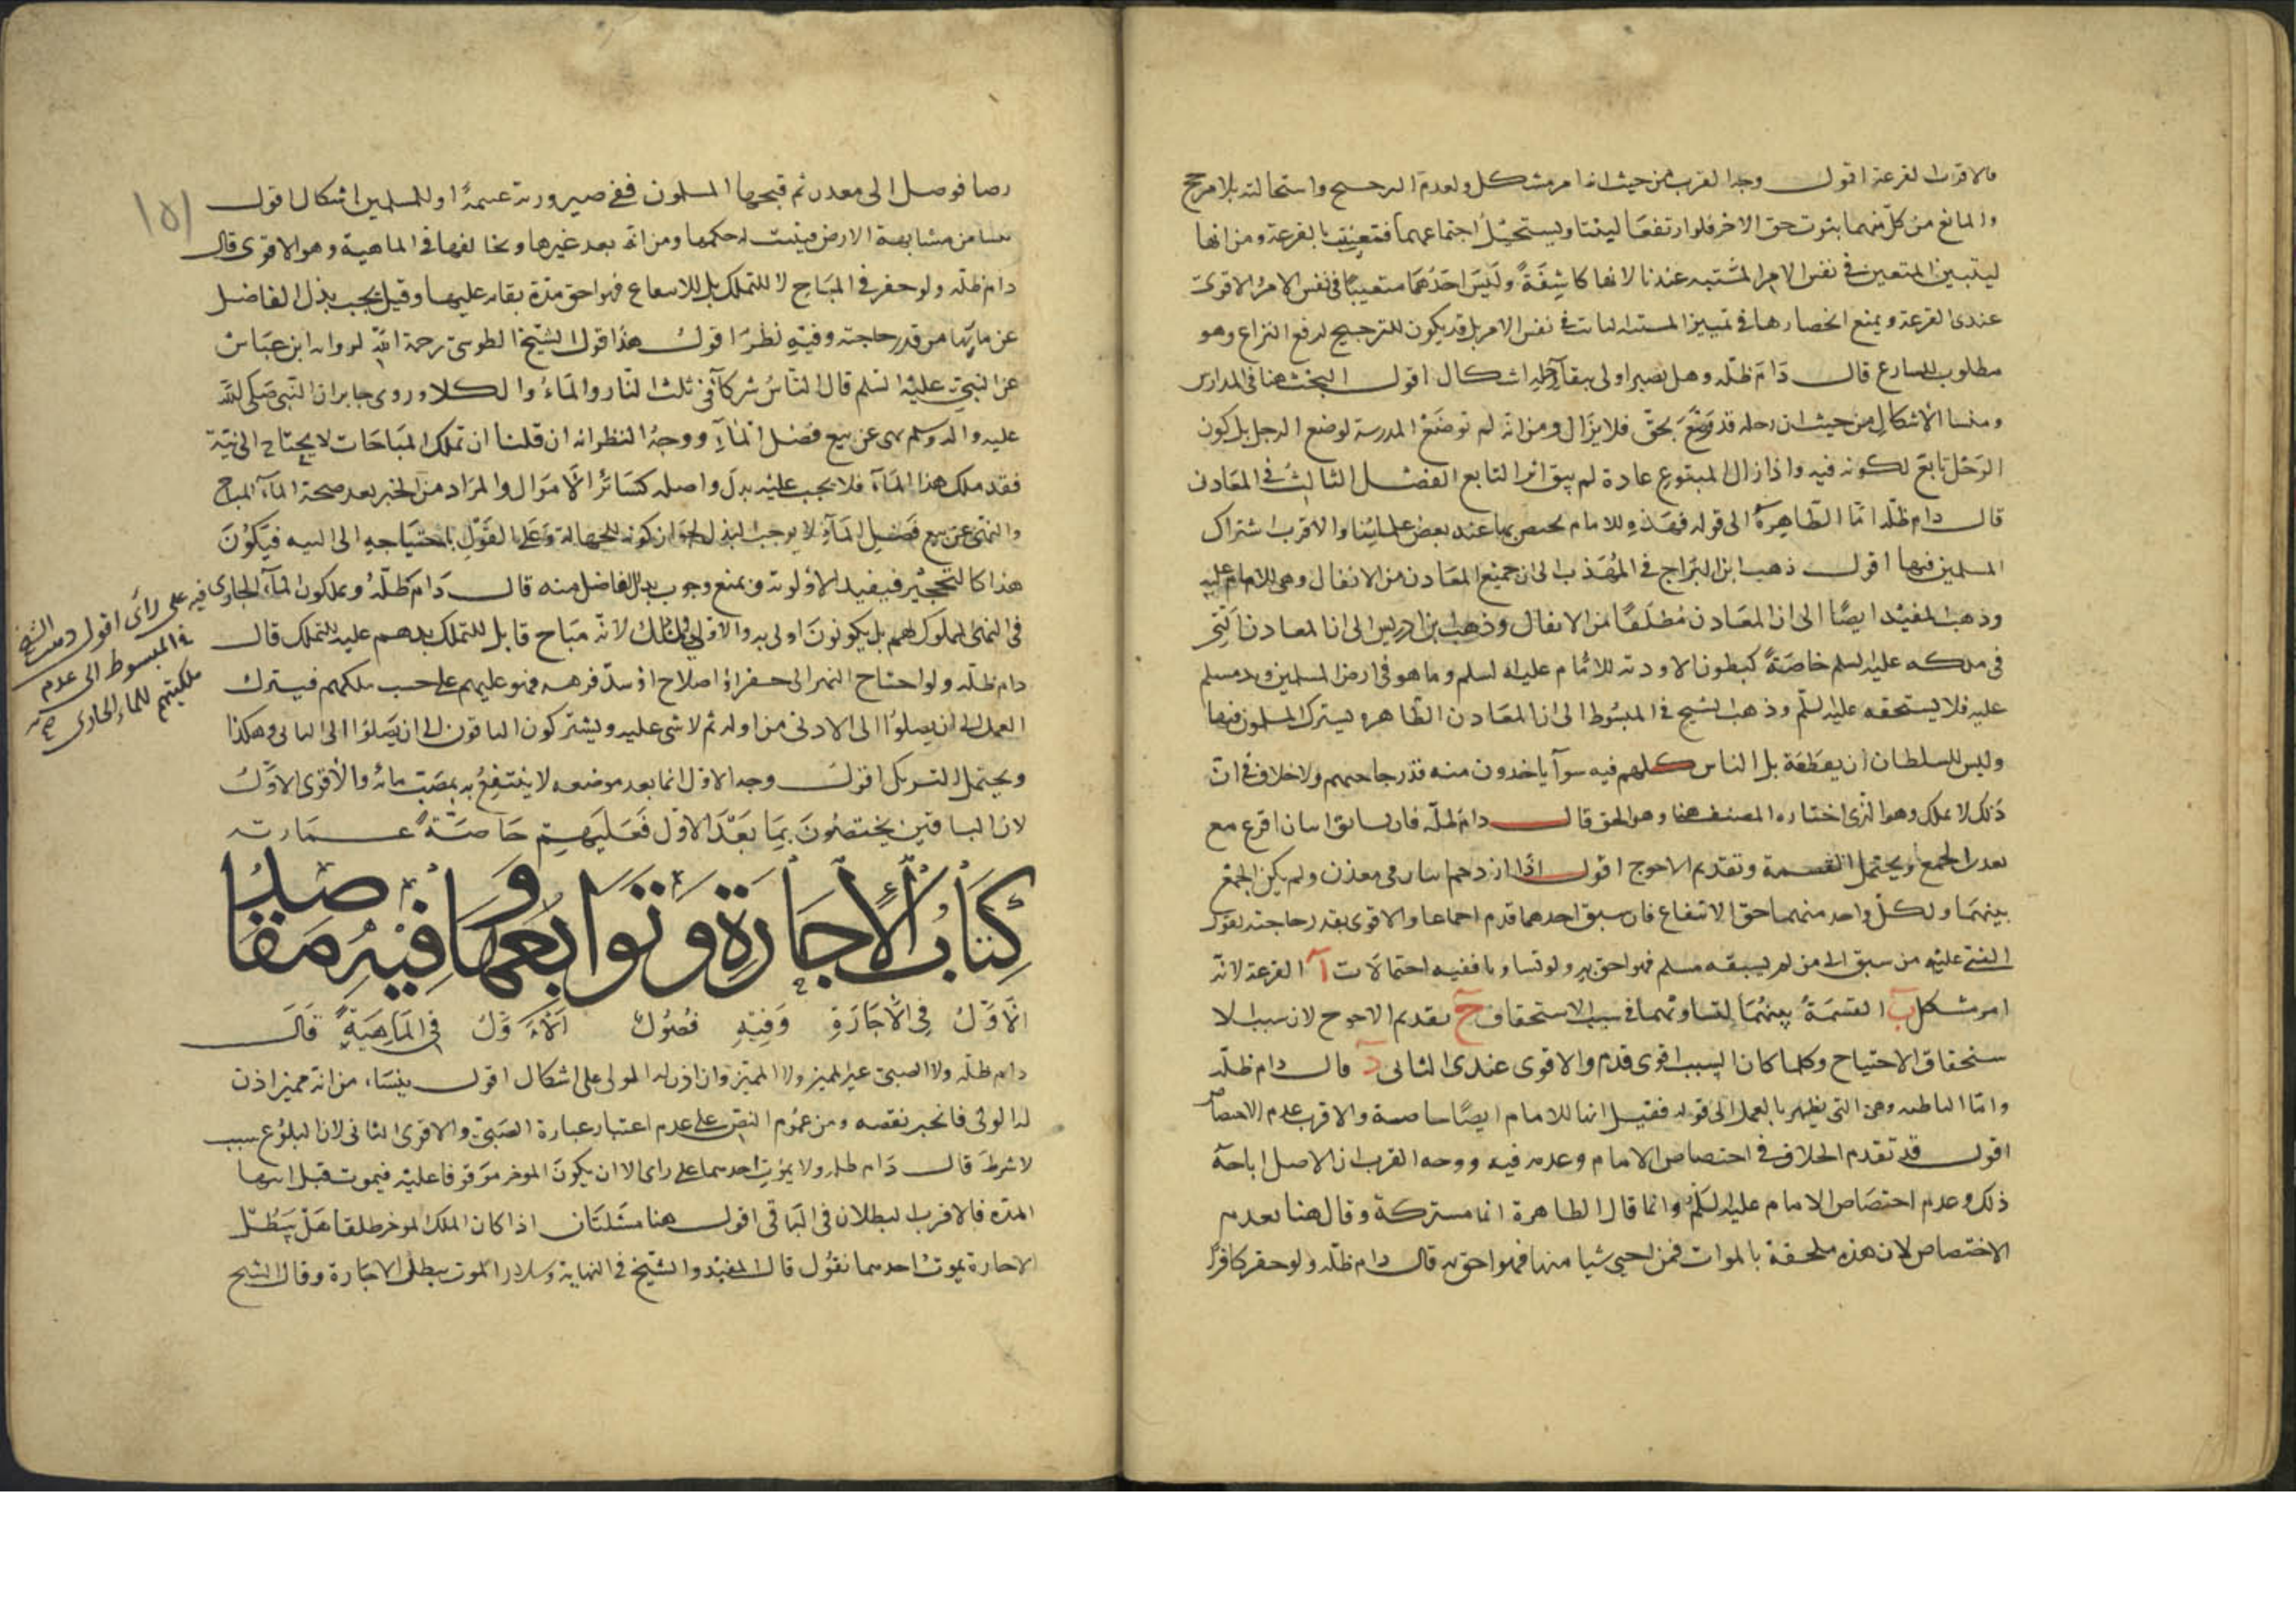 فالاقرب القرعة اقول وجه القرب من حيث انه امر مشكل ولعدم الترجيح واستحالته بلا مرجح
والمانع من كل منهما ثبوت حق الاخر فلو ارتفعا ليثبتا ويستحيل اجتماعهما فتعينت بالقرعة ومن انها
ليتبين المتعين في نفس الامر المشتبه عندنا لانها كاشفة وليس احدهما متعينا في نفس الامر والاقوى
عندى القرعة ويمنع انحصارها في تمييز المستد في نفس الامر بل قد يكون للترجيح لدفع النزاع وهو
مطلوب للشارع قال دام ظله وهل يصير اولى ببقاء رحله اشكال اقول البحث هنا في المدارس
ومنشا الاشكال من حيث ان رحله قد وضع بحق فلا يزال ومن انه لم توضع المدرسة لوضع الرحل بل كون
الرحل تابع لكونه فيه واذا زال المبتوع عادة لم يبق اثر التابع الفصل الثالث في المعادن
قال دام ظله اما الظاهرة الى قوله فهذه للامام يختص بها عند بعض علمائنا والاقرب اشتراك
المسلمين فيها اقول ذهب ابن البراج في المهذب الى ان جميع المعادن من الانفال وهى للامام عليه
وذهب المفيد ايضا الى ان المعادن مطلقا من الانفال وذهب ابن ادريس الى ان المعادن التى
في ملكه عليه السلم خاصة كبطون الاودية للامام عليه السلم وما هو في ارض المسلمين ويد مسلم
عليه فلا يستحقه عليه السلم وذهب الشيخ في المبسوط الى ان المعادن الظاهرة يشترك المسلمون فيها
وليس للسلطان ان يقطعه بل الناس كلهم فيه سوآ ياخذون منه قدر حاجتهم ولا خلاف في ان
ذلك لا يملك وهو الذى اختاره المصنف هنا وهو الحق قال دام ظله فان تسابق اثنان اقرع مع
تعذر الجمع ويحتمل القسمة وتقديم الاحوج اقول اذا ازدحم اثنان في معدن ولم يكن الجمع
بينهما ولكل واحد منهما حق الانتفاع فان سبق احدهما قدم اجماعا والاقوى بقدر حاجته لقوله
عليه من سبق الى من لم يسبقه مسلم فهو احق به ولو تساويا ففيه احتمالات آ القرعة لانه
امر مشكل ب القسمة بينهما لتساويهما في سبب الاستحقاق ج تقديم الاحوج لان سبب الا
ستحقاق الاحتياج وكلما كان السبب اقوى قدم والاقوى عندى الثانى د قال دام ظله
واما الباطنة وهى التى يظهر بالعمل الى قوله فقيل انها للامام ايضا خاصة والاقرب عدم الاختصاص
اقول قد تقدم الخلاف في اختصاص الامام وعدمه فيه ووجه القرب ان الاصل اباحة
ذلك وعدم اختصاص الامام عليه السلم وانما قال الظاهرة انها مشتركة وقال هنا بعدم
الاختصاص لان هذه ملحقة بالموات فمن احيى شيا منها فهو احق به قال دام ظله ولو حفر كافر
ارضا فوصل الى معدن ثم فتحها المسلمون ففى صيرورته غنيمة او للمسلمين اشكال اقول
ينشا من مشابهة الارض فيثبت له حكمها ومن انه بعد غيرها ومخالفها في الماهية وهو الاقوى قال
دام ظله ولو حفر في المباح لا للتملك بل للانتفاع فهو احق مدة بقائه عليها وقيل يجب بذل الفاضل
عن مائها من قدر حاجته وفيه نظر اقول هذا قول الشيخ الطوسى رحمة الله لرواية ابن عباس
عن النبي عليه السلم قال الناس شركآء في ثلث النار والمآء والكلاء وروى جابر ان النبى صلى الله
عليه واله وسلم نهى عن بيع فضل المآء ووجه النظر انه ان قلنا ان تملك المباحات لا يحتاج الى نية
فقد ملك هذا المآء فلا يجب عليه بدل واصله كسائر الاموال والمراد من الخبر بعد صحة المآء المباح
والنهى عن بيع فضل المآء لا يوجب البذل لجواز كونه للجهالة وعلى القول باحتياجه الى النية فيكون
هذا كالتحجير فيفيد الاولوية ويمنع وجوب بذل الفاضل منه قال دام ظله ويملكون المآء الجارى فيه على راى اقول ذهب الشيخ
في المبسوط الى عدم
ملكيتهم للماء الجارى
في النهر المملوك لهم بل يكونون اولى به والاولى لانه مباح قابل للتملك بدهم عليه للتملك قال
دام ظله ولو احتاج النهر الى حفر او اصلاح او سد فرهم فهو عليهم على حسب ملكهم فيشترك
العمل الى ان يصلوا الى الادنى من اوله ثم لا شى عليه ويشتركون الباقون الى ان يصلوا الى الثانى وهكذا
ويحتمل التشريك اقول وجه الاول انما بعد موضعه لا ينتفع به بمصب مائه والاقوى الاول
لان الباقين يختصون بما بعد الاول فعليهم خاصة عمارته
كتاب الاجارة وتوابعها وفيه مقاصد
الاول في الاجارة وفيه فصول الاول في الماهية قال
دام ظله ولا الصبى غير المميز ولا المميز وان اذن له المولى على اشكال اقول ينشاء من انه مميز اذن
له الولى فانجبر نقصه ومن عموم النص على عدم اعتبار عبارة الصبى والاقوى الثانى لان البلوغ سبب
لا شرط قال دام ظله ولا بموت احدهما على راى الا ان يكون الموخر موقوفا عليه فيموت قبل انتهاء
المدة فالاقرب البطلان في الباقى اقول هنا مسئلتان اذا كان الملك الموخر طلقا هل يبطل
الاجارة بموت احدهما نقول قال المفيد والشيخ في النهاية وسلار الموت يبطل الاجارة وقال الشيخ
١٥١